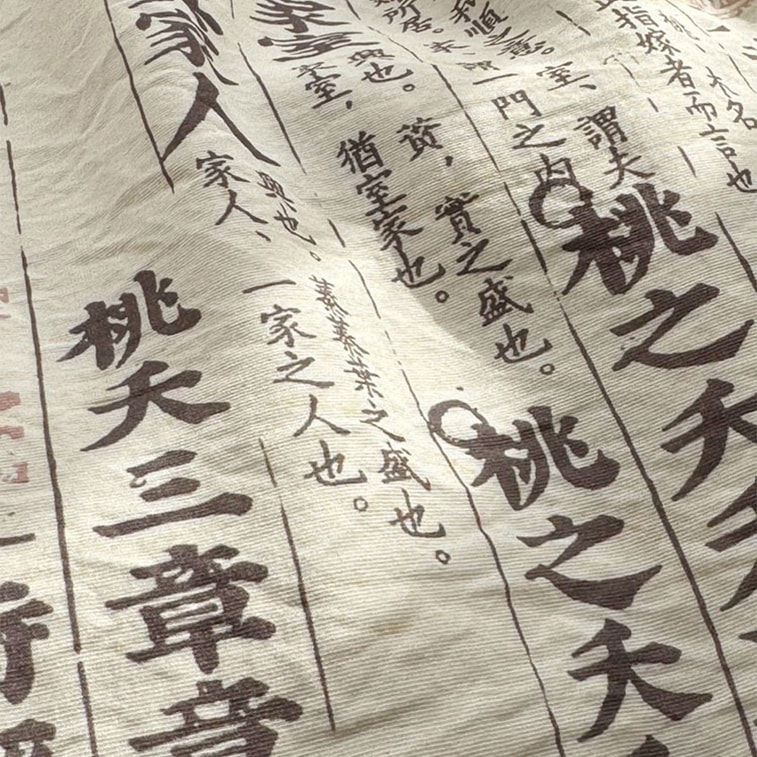 指嫁者而言也
和順之意。室、謂夫
所居。家、謂一門之內
○桃之夭夭
家室
興也。蕡，實之盛也。
室，猶室家也。
○桃之夭
家人
興也。蓁蓁葉之盛也。
家人、一家之人也。
桃夭三章章